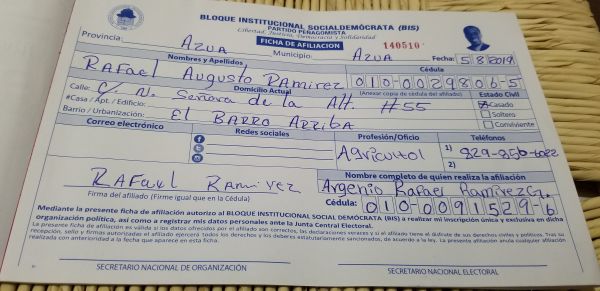 BLOQUE INSTITUCIONAL SOCIALDEMÓCRATA (BIS)
PARTIDO PEÑAGOMISTA
Libertad, Justicia, Democracia y Solidaridad
FICHA DE AFILIACION
140510
Provincia: AZUA Municipio: AZUA Fecha: 5/8/2019
Nombres y Apellidos Cédula
RAFael Augusto RAmirez 010-0029806-5
Domicilio Actual (Anexar copia de cédula del afiliado) Estado Civil
Calle: C/ N. Señora de la Alt. #55 Casado
#Casa / Apt. / Edificio: Soltero
Barrio / Urbanización: El BARRO ARRIBA Conviviente
Correo electrónico Redes sociales Profesión/Oficio Teléfonos
Agricultol 1) 829-856-
2)
Nombre completo de quien realiza la afiliación
RAFael RAMIREZ Argenio Rafael Ramirez
Firma del afiliado (Firme igual que en la Cédula) Cédula: 010-0091529-6
Mediante la presente ficha de afiliación autorizo al BLOQUE INSTITUCIONAL SOCIALDEMÓCRATA (BIS) a realizar mi inscripción única y exclusiva en dicha
organización política, así como a registrar mis datos personales ante la Junta Central Electoral.
La presente ficha de afiliación es válida si los datos ofrecidos por el afiliado son correctos, las declaraciones veraces y si el afiliado tiene el disfrute de sus derechos civiles y políticos. Tras su
recepción, sello y firmas autorizadas el afiliado ejercerá todos los derechos y los deberes estatutariamente sancionados, de acuerdo a la ley. La presente afiliación anula cualquier afiliación
realizada con anterioridad a la fecha que aparece en esta ficha.
SECRETARIO NACIONAL DE ORGANIZACIÓN SECRETARIO NACIONAL ELECTORAL